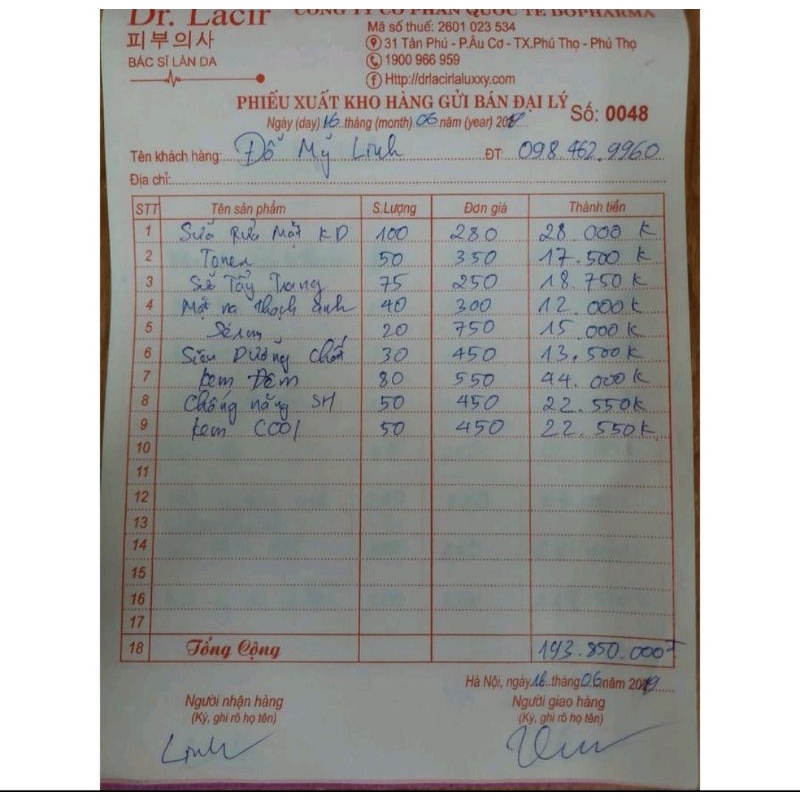 Dr. Lacir
CÔNG TY CỔ PHẦN QUỐC TẾ DOPHARMA
피부의사
Mã số thuế: 2601 023 534
31 Tân Phú - P.Âu Cơ - TX.Phú Thọ - Phú Thọ
BÁC SĨ LÀN DA
1900 966 959
Http://drlacirlaluxxy.com
PHIẾU XUẤT KHO HÀNG GỬI BÁN ĐẠI LÝ Số: 0048
Ngày (day) 16 tháng (month) 06 năm (year) 201
Tên khách hàng: Đỗ Mỹ Linh ĐT 098.462.9960
Địa chỉ:
STT Tên sản phẩm S.Lượng Đơn giá Thành tiền
1 Sữa Rửa Mặt KD 100 280 28 000 K
2 Toner 50 350 17.500 K
3 Sữ Tẩy Trang 75 250 18.750 K
4 Mặt nạ Thạch anh 40 300 12.000 K
5 Serum 20 750 15 000 K
6 Siêu Dưỡng Chất 30 450 13,500 K
7 kem Đêm 80 550 44.000 K
8 Chống nắng SH 50 450 22.550K
9 kem COOl 50 450 22.550K
10
11
12
13
14
15
16
17
18 Tổng Cộng 193.850.000
Hà Nội, ngày 16 tháng 06 năm 2019
Người nhận hàng Người giao hàng
(Ký, ghi rõ họ tên) (Ký, ghi rõ họ tên)
Linh